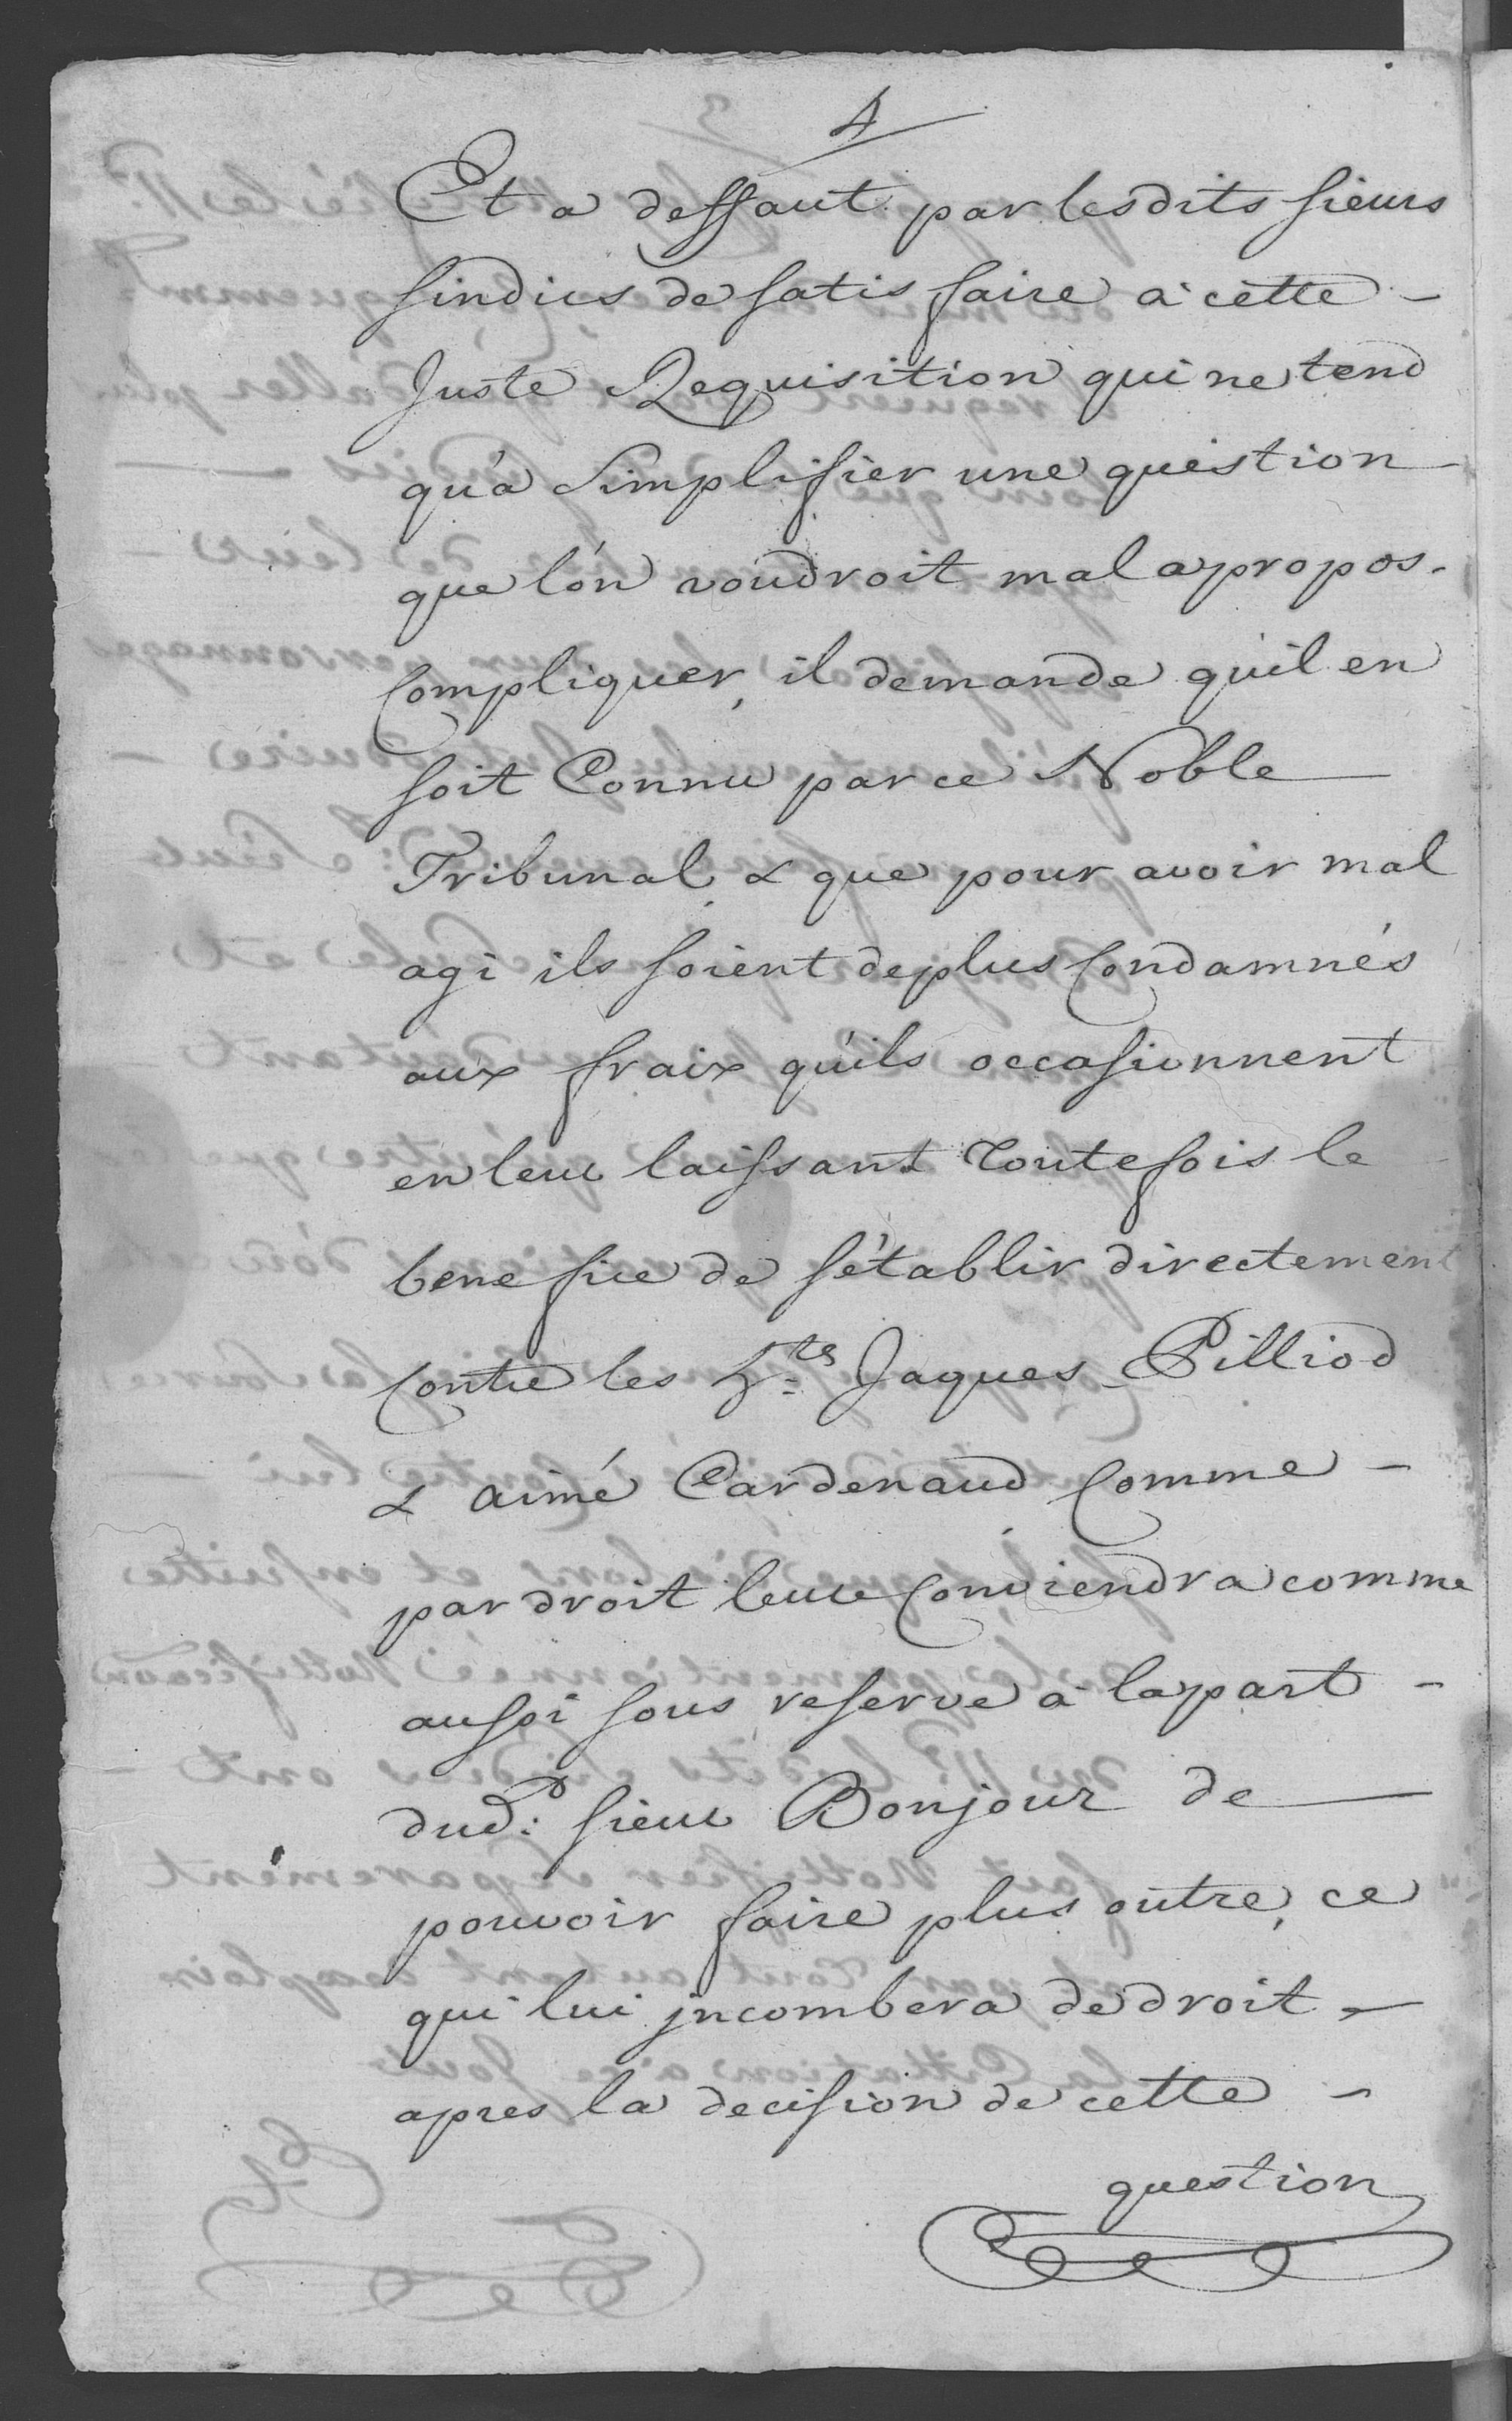 4
Et a deffaut par lesdits sieurs
sindics de satisfaire à cette -
Juste Requisition qui ne tend
qu'à Simplifier une question
que lón voudroit mal apropos.
Compliquer, il demande quil en
soit Connu par ce Noble
Tribunal, & que pour avoir mal
agi ils soient deplus Condamnés
aux fraix quils occasionnent
en leur laissant toutefois le
benefice de sétablir directement
Contre les hts Jaques Pilliod
& aimé Cardenaud Comme -
par droit leur Conviendra comme
aussi sous reserve à la part -
dud: sieur Bonjour de
pouvoir faire plus outre, ce
qui lui jncombera de droit -
apres la decision de cette -
question